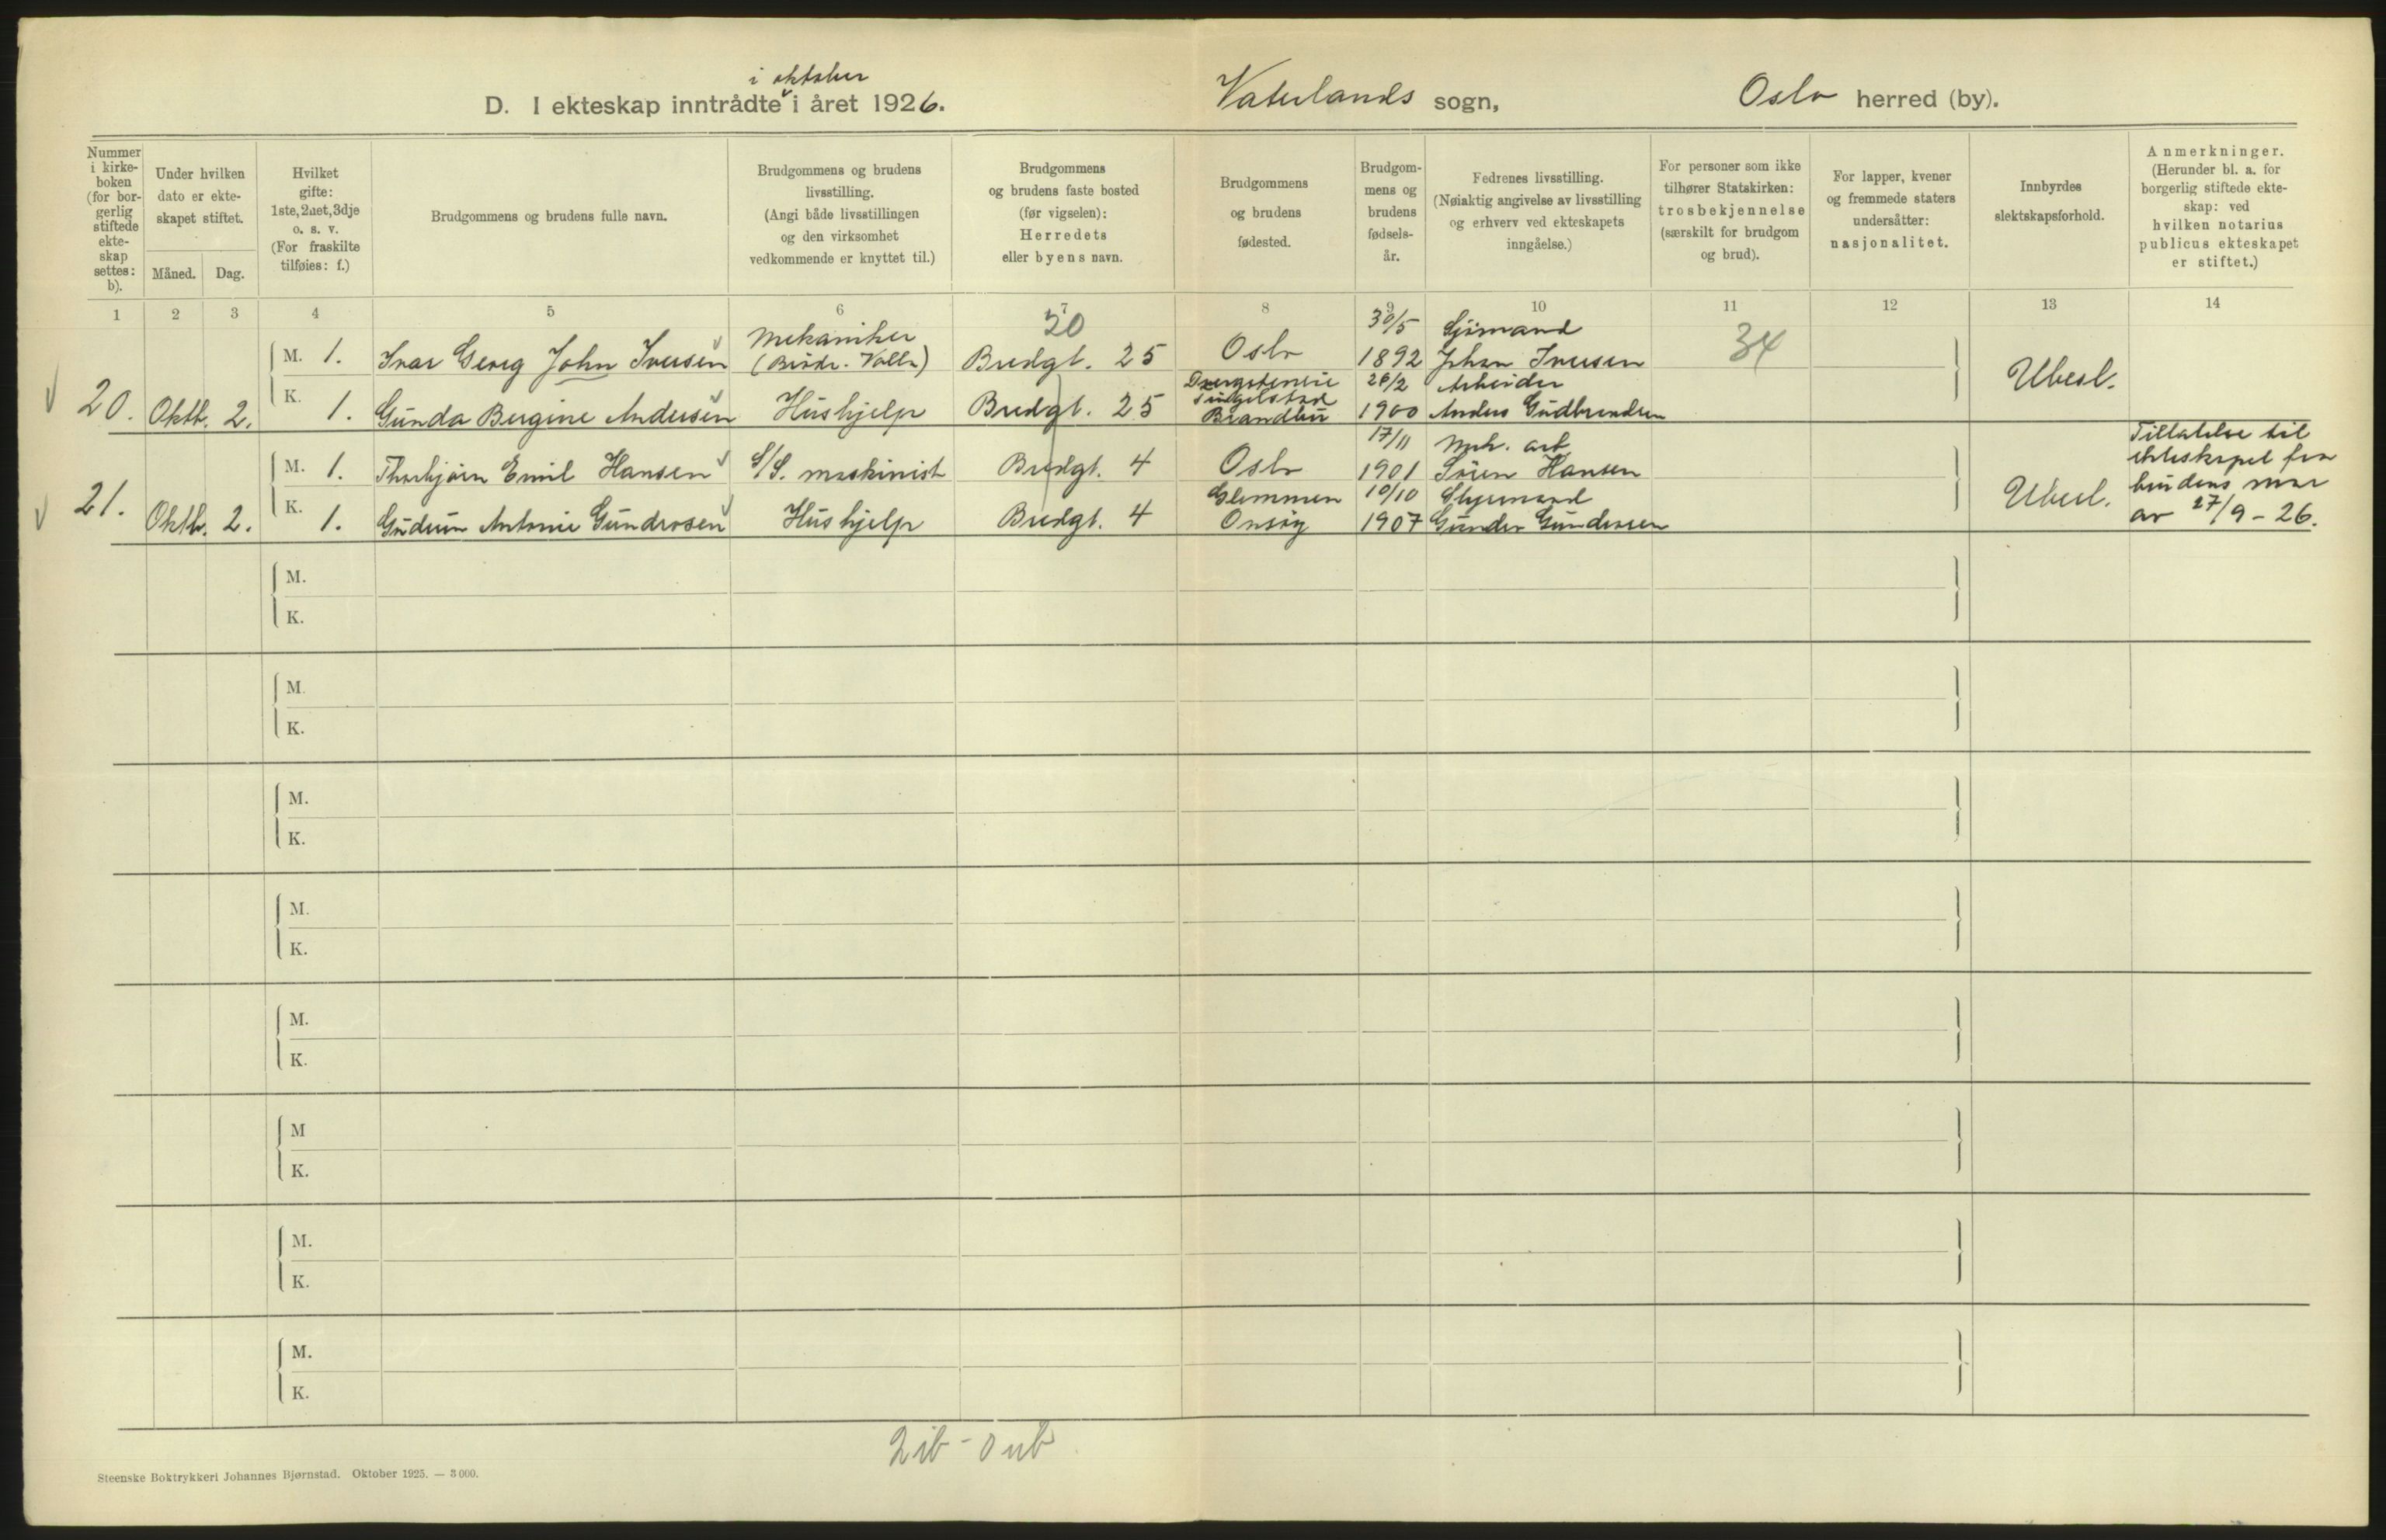 i oktober
D. I ekteskap inntrådte i året 1926.
Vaterlands sogn,
Oslo herred (by).
Nummer i kirkeboken (for borgerlig stiftede ekteskap settes: b).
Under hvilken dato er ekteskapet stiftet.
Måned.
Dag.
Hvilket gifte: 1ste, 2net, 3dje o. s. v. (For fraskilte tilføies: f.)
Brudgommens og brudens fulle navn.
Brudgommens og brudens livsstilling. (Angi både livsstillingen og den virksomhet vedkommende er knyttet til.)
Brudgommens og brudens faste bosted (før vigselen): Herredets eller byens navn.
Brudgommens og brudens fødested.
Brudgommens og brudens fødselsår.
Fedrenes livsstilling. (Nøiaktig angivelse av livsstilling og erhverv ved ekteskapets inngåelse.)
For personer som ikke tilhører Statskirken: trosbekjennelse (særskilt for brudgom og brud).
For lapper, kvener og fremmede staters undersåtter: nasjonalitet.
Innbyrdes slektskapsforhold.
Anmerkninger. (Herunder bl. a. for borgerlig stiftede ekteskap: ved hvilken notarius publicus ekteskapet er stiftet.)
1 2 3 4 5 6 7 8 9 10 11 12 13 14
20
34
20. Oktb. 2.
M. 1. Ivar Georg John Iversen Mekaniker (Brødr. Volla) Bredgt. 25 Oslo 30/5 1892 Sjømand Johan Iversen
K. 1. Gunda Bergine Andersen Hushjelp Bredgt. 25 Tingelstad Brandbu 26/2 1900 Arbeider Anders Gudbrandsen
Ubesl.
21. Oktb. 2.
M. 1. Thorbjørn Emil Hansen S/S. maskinist Bredgt. 4 Oslo 17/11 1901 Mek. arb. Sören Hansen
K. 1. Gudrun Antonie Gundrosen Hushjelp Bredgt. 4 Glemmen Onsøy 10/10 1907 Styrmand Gunder Gundersen
Ubesl.
Tillatelse til
ekteskapet fra
brudens mor
av 27/9 - 26.
M.
K.
M.
K.
M.
K.
M.
K.
M.
K.
M
K.
M.
K.
M.
K.
2 ib - 0 ub
Steenske Boktrykkeri Johannes Bjørnstad. Oktober 1925. — 3 000.